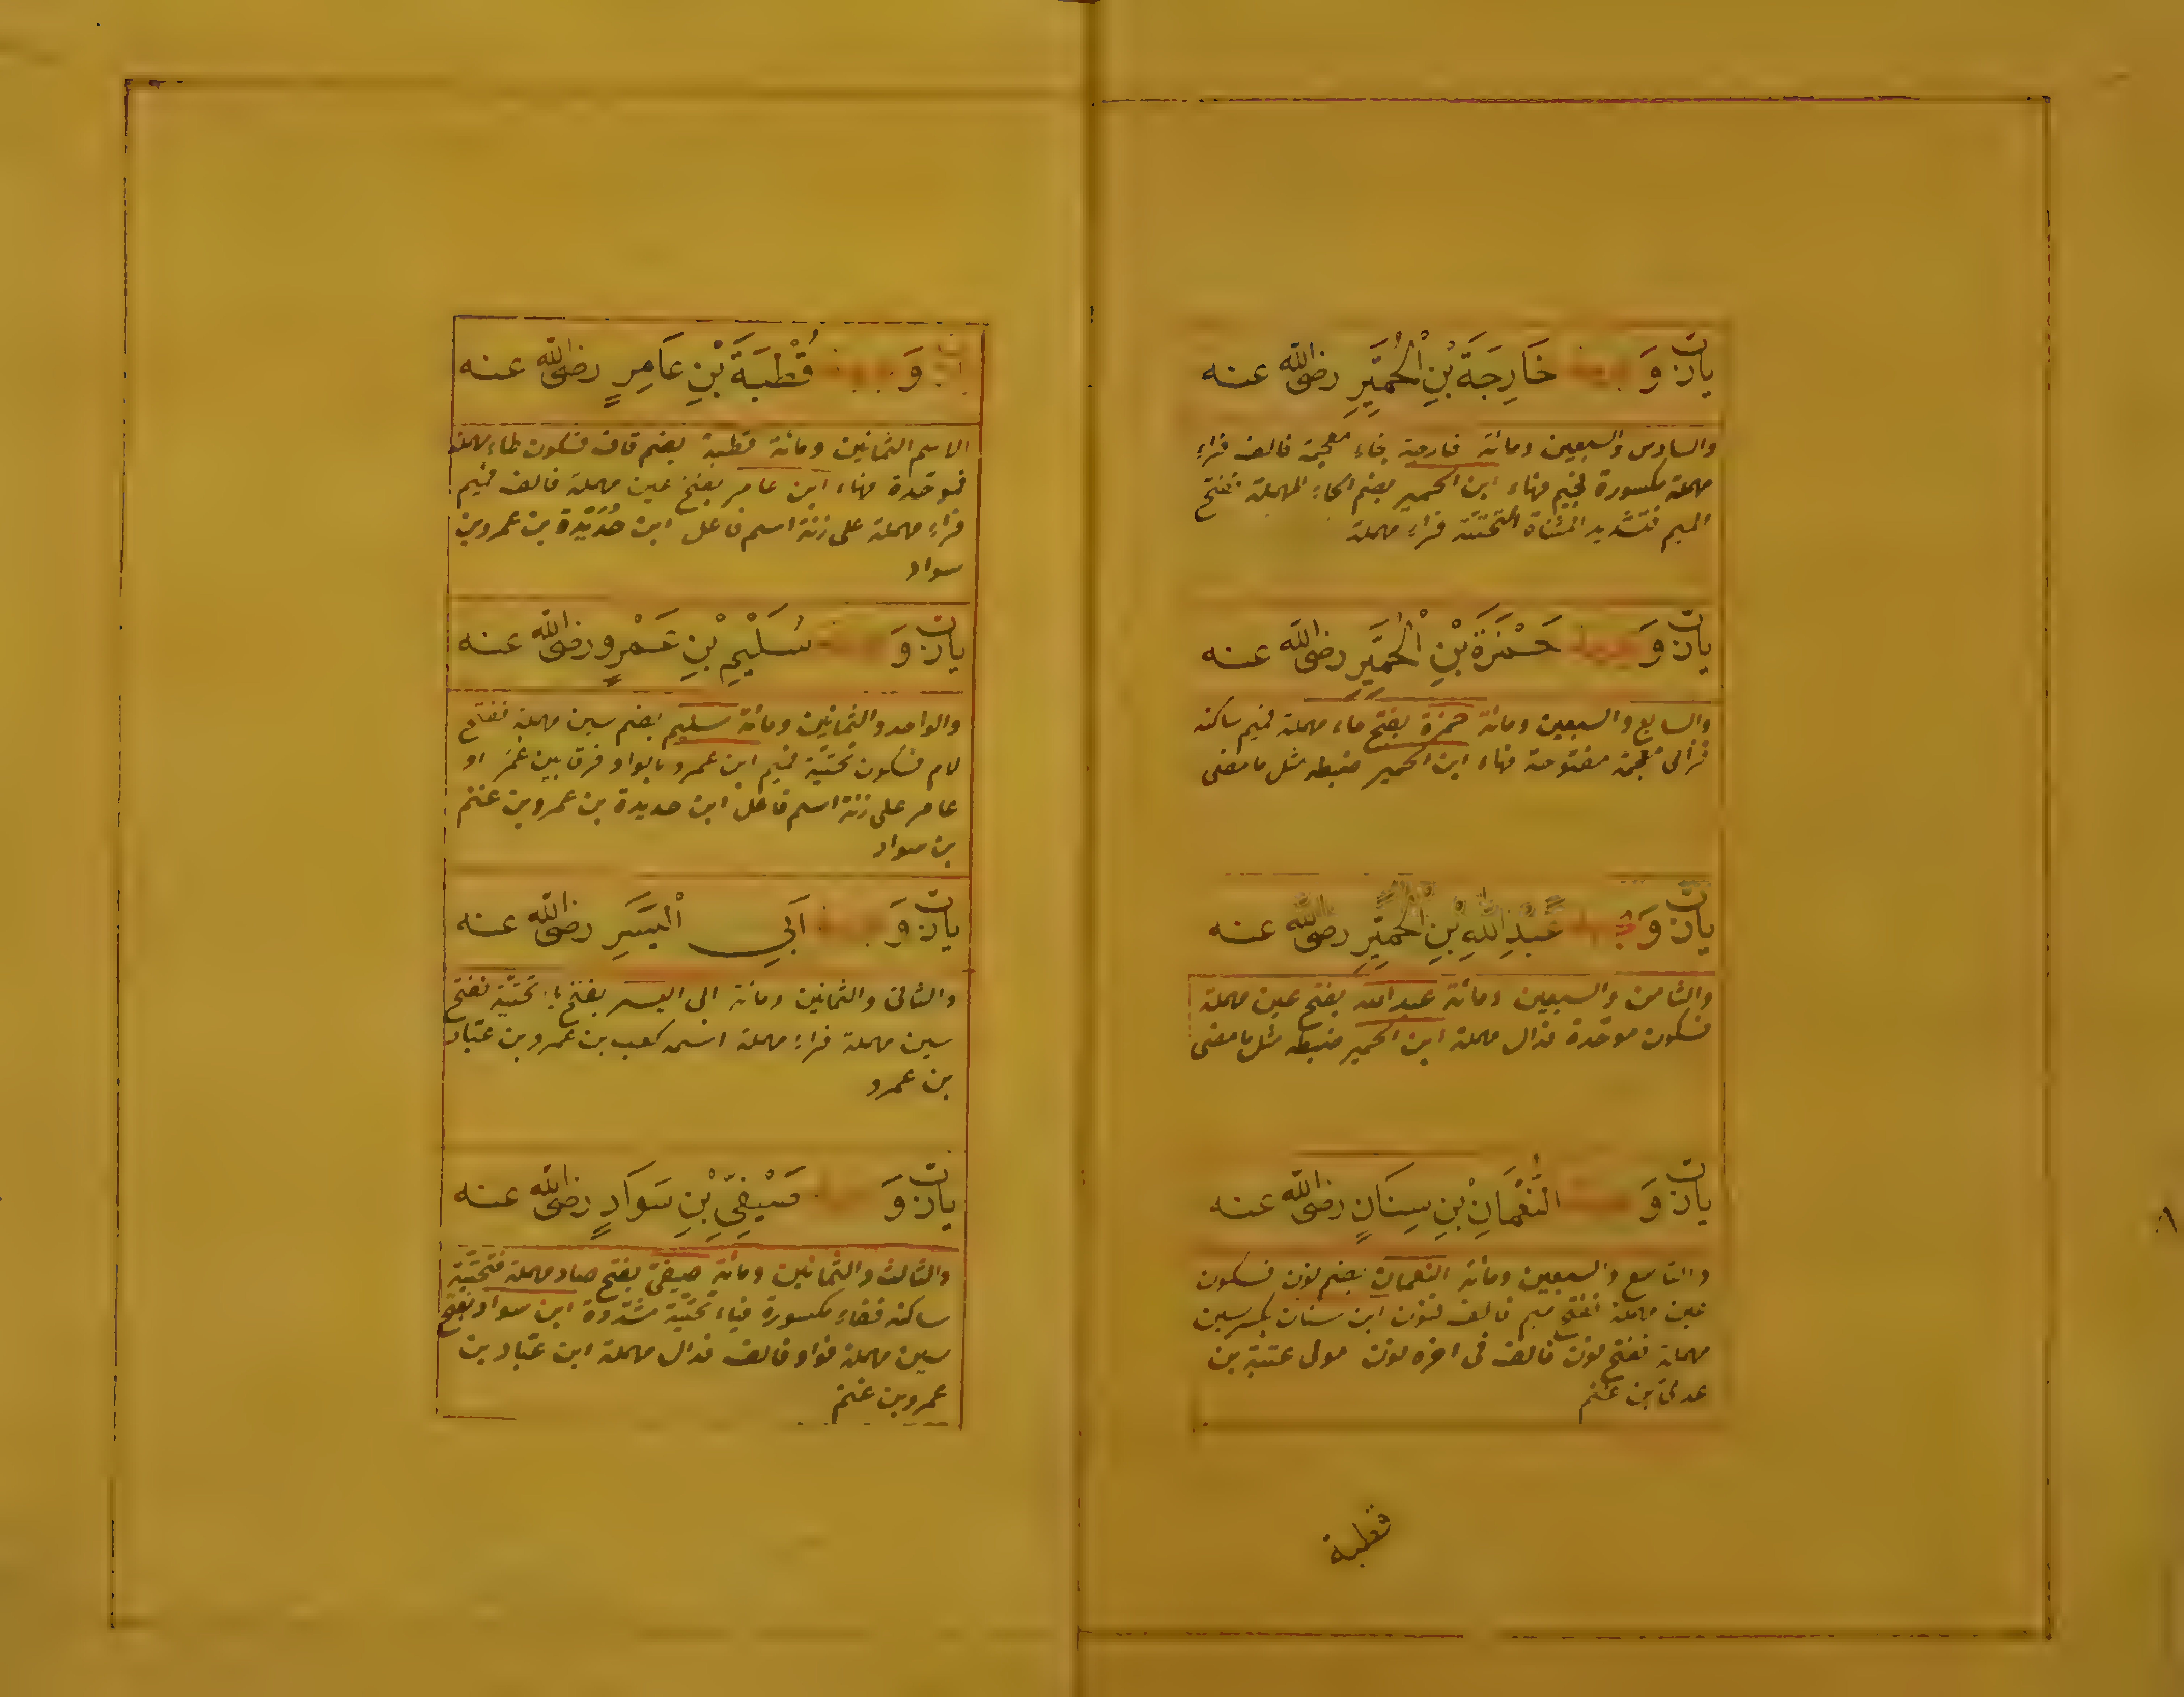 يا رب وَ خَارِجَةَ بْنِ الْحُمَيِّرِ رضى الله عنه
والسادس والسبعين ومائة خارجة بخاء معجمة فالف فراء
مهملة مكسورة فجيم فهاء ابن الحمير بضم الحاء المهملة ففتح
الميم فتشديد المثناة التحتية فراء مهملة
وَ حَمْزَةَ بْنِ الْحُمَيِّرِ رضى الله عنه
والسابع والسبعين ومائة حمزة بفتح حاء مهملة فميم ساكنة
فزاى مفتوحة فهاء ابن الحمير ضبطه مثل ما مضى
وَ عَبْدِ اللهِ بْنِ الْحُمَيِّرِ رضى الله عنه
والثامن والسبعين ومائة عبد الله بفتح عين مهملة
فسكون موحّدة فدال مهملة ابن الحمير ضبطه مثل ما مضى
وَ النُّعْمَانِ بْنِ سِنَانٍ رضى الله عنه
والتاسع والسبعين ومائة النعمان بضم نون فسكون
عين مهملة ففتح ميم فالف فنون ابن سنان بكسر سين
مهملة ففتح نون فالف فى اخره نون مولى عتبة بن
عدى بن غنم
قطبة
وَ قُطْبَةَ بْنِ عَامِرٍ رضى الله عنه
الاسم الثمانين ومائة قطبة بضم قاف فسكون طاء مهملة
فموحّدة فهاء ابن عامر بفتح عين مهملة فالف فميم
فراء مهملة على زنة اسم فاعل ابن حُدَيْدة بن عمرو بن
سواد
وَ سُلَيْمِ بْنِ عَمْرٍو رضى الله عنه
والواحد والثمانين ومائة سليم بضم سين مهملة ففتح
لام فسكون تحتيّة فميم ابن عمرو بالواو فرقا بين عُمَر او
عامر على زنة اسم فاعل ابن حديدة بن عمرو بن غنم
بن سواد
وَ اَبِى الْيَسَرِ رضى الله عنه
والثانى والثمانين ومائة ابى اليسر بفتح ياء تحتيّة ففتح
سين مهملة فراء مهملة اسمه كعب بن عمرو بن عبّاد
بن عمرو
وَ صَيْفِيِّ بْنِ سَوَادٍ رضى الله عنه
والثالث والثمانين ومائة صيفىّ بفتح صاد مهملة فتحتيّة
ساكنة ففاء مكسورة فياء تحتيّة مشدّدة ابن سواد بفتح
سين مهملة فواو فالف فدال مهملة ابن عبّاد بن
عمرو بن غنم